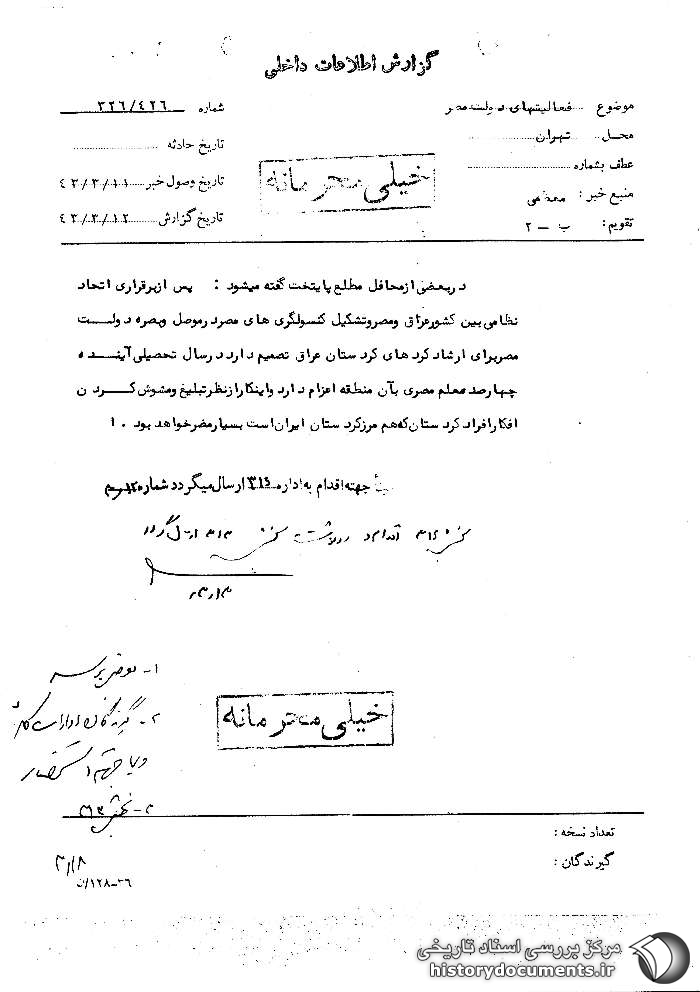 گزارش اطلاعات داخلی
موضوع فعالیتهای دولت مصر
محل تهران
عطف بشماره
منبع خبر :
تقویم : ب - ۲
شماره ۳۲۶/۴۲۶
تاریخ حادثه
تاریخ وصول خبر ۴۳/۳/۱۱
تاریخ گزارش ۴۳/۳/۱۲
خیلی محرمانه
در بعضی از محافل مطلع پایتخت گفته میشود : پس از برقراری اتحاد
نظامی بین کشور عراق و مصر و تشکیل کنسولگری های مصر در موصل و بصره دولت
مصر برای ارشاد کرد های کردستان عراق تصمیم دارد در سال تحصیلی آینده
چهارصد معلم مصری بآن منطقه اعزام دارد و اینکار از نظر تبلیغ و مشوش کردن
افکار افراد کردستان که هم مرز کردستان ایران است بسیار مضر خواهد بود . ا
جهت اقدام به اداره ۳۱۶ ارسال میگردد شماره
بخش ۳۱۶ اقدام
۱- بعرض برسد
۲-
۳- بخش
خیلی محرمانه
تعداد نسخه :
گیرندگان :
۳/۱۸
۳۶-۱۲۸/ن
مرکز بررسی اسناد تاریخی
historydocuments.ir